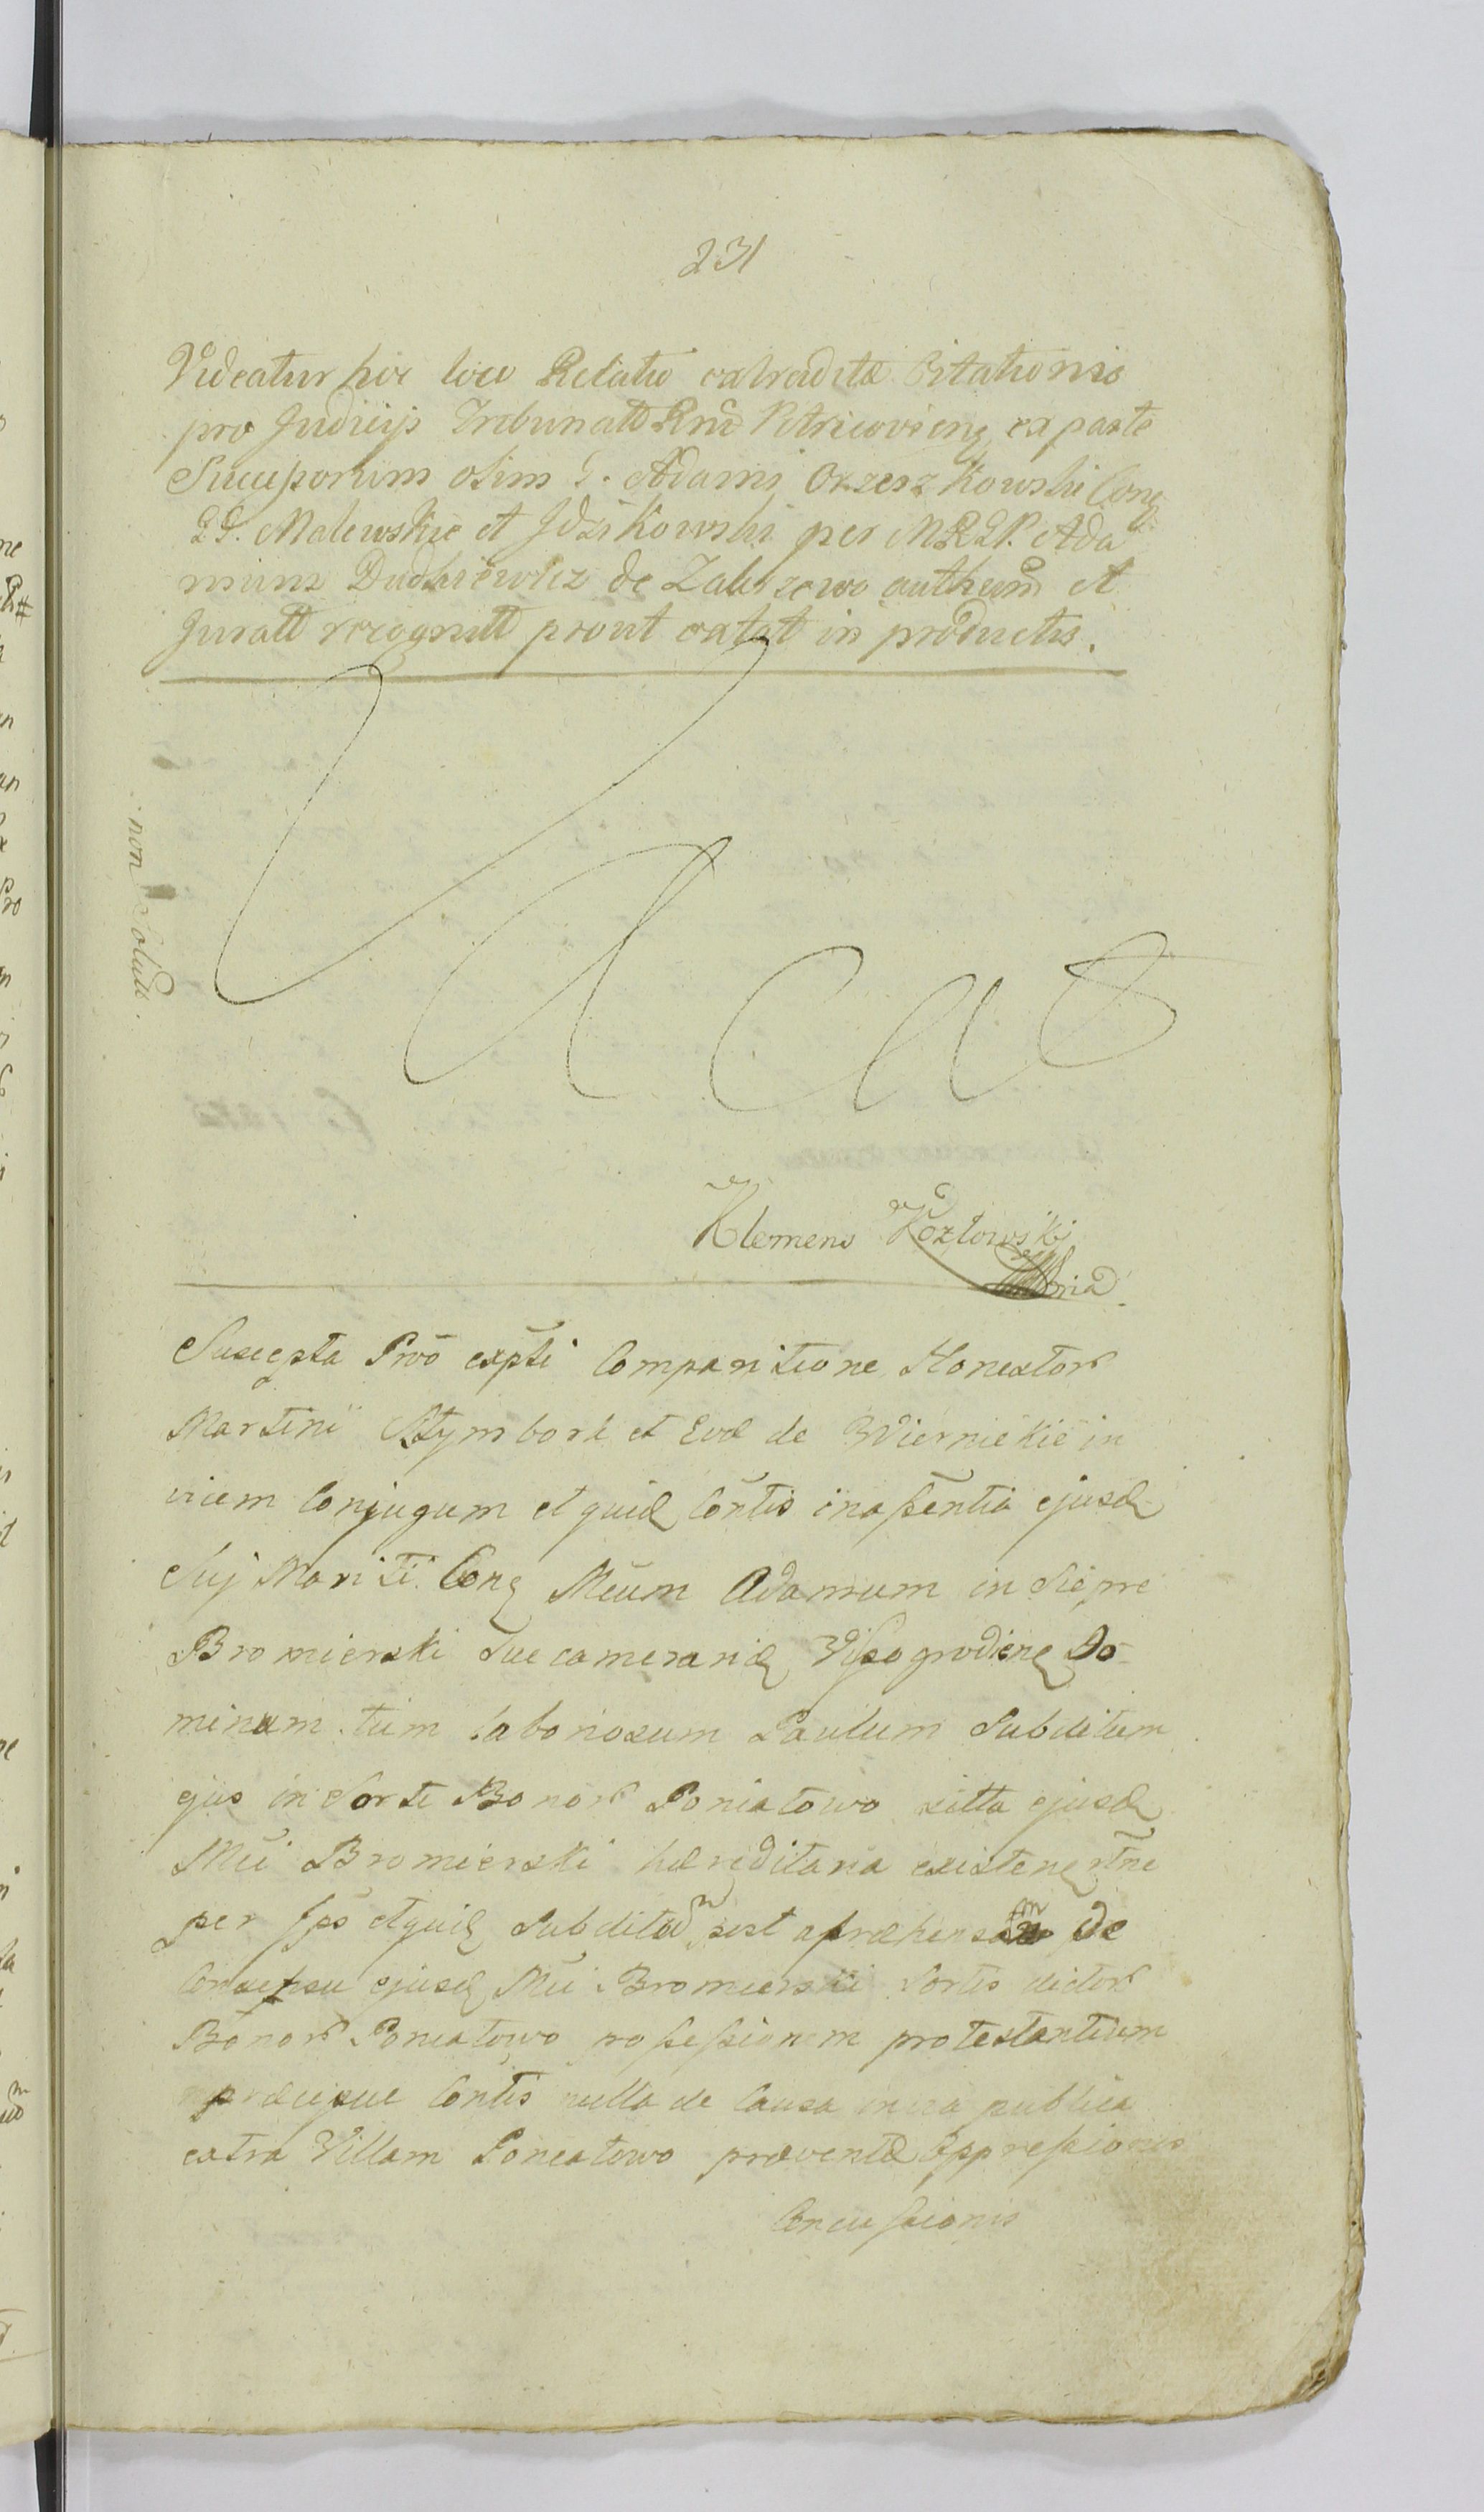 231
Videatur hic loco Relatio extraditæ Citationis
pro Judicijs Tribunalt Rni Petricovieng ex parte
Succesorum olim G. Adami Orzeszkowski Cong
GG. Malewskie et Jdzikowski per MRGP. Ada
mum Dudkiewicz de Zaluszewo authenm et
Juratt recognitt prout extat in productis.
non Solutt.
Vacas
Klemens Kozłowski
mria
Suscepta Pro expti Comparitione Honestor
Martini Sztymbort et Evæ de Wiernickie in
vicem Conjugum et quid Contis in assentia ejusd
Suj Mariti Cong Meum Adamum in Siepre
Bromierski Succamerarid Wissogrodieng Do
minum tum laboriosum Paulum Subditum
ejus in Sorte Bonor Poniatowo sitta ejusd
Mei Bromierski hæreditaria existeng rtne
per Jps et quid Subditum post apræhensam de
Consensu ejusd Mei Bromierski Sortis dictor
Bonor Poniatowo possessionem protestantium
præcipue Contis nulla de Causa in via publica
extra Villam Poniatowo præventæ Oppressionis
Concussionis